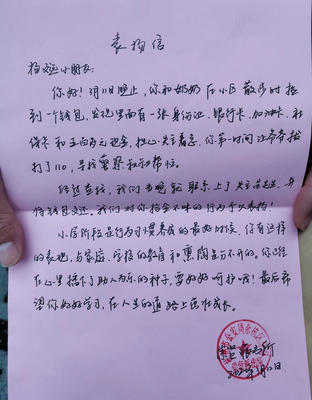 表扬信
小朋友:
你好!3月11日晚上,你和奶奶在小区散步时捡
到一个钱包,发现里面有一张身份证、银行卡、加油卡、社
保卡和五百多元现金,担心失主着急,你第一时间让爷爷拨
打了110,寻找警察叔叔帮忙。
经过查找,我们当晚就联系上了失主,并
将钱包交还。我们对你拾金不昧的行为予以表扬!
小学阶段是行为习惯养成的最好时候,你有这样
的表现,与家庭、学校的教育和熏陶是分不开的。你已经
在心里播下了助人为乐的种子,要好好呵护哦!最后希
望你好好学习,在人生的道路上茁壮成长。
派出所